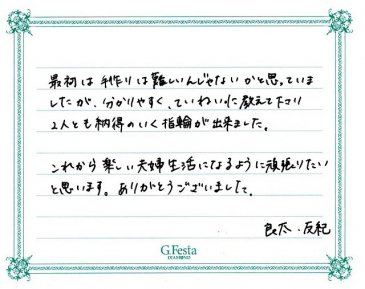 最初は手作りは難しいんじゃないかと思っていま
したが、分かりやすく、ていねいに教えて下さり
2人とも納得のいく指輪が出来ました。
これから楽しい夫婦生活になるように頑張りたい
と思います。ありがとうございました。
良太・友紀
G.Festa
DIAMOND